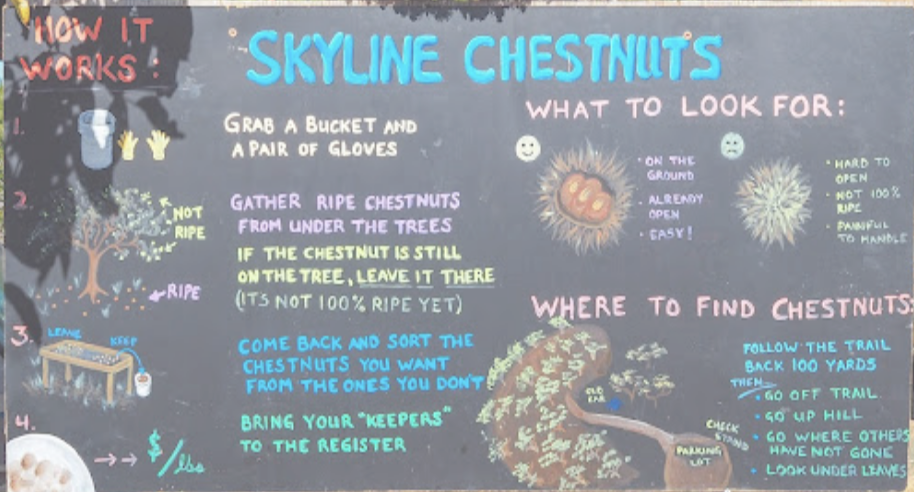 HOW IT
WORKS:
SKYLINE CHESTNUTS
1.
GRAB A BUCKET AND
A PAIR OF GLOVES
2.
NOT
RIPE
RIPE
GATHER RIPE CHESTNUTS
FROM UNDER THE TREES
IF THE CHESTNUT IS STILL
ON THE TREE, LEAVE IT THERE
(ITS NOT 100% RIPE YET)
3.
LEAVE
KEEP
COME BACK AND SORT THE
CHESTNUTS YOU WANT
FROM THE ONES YOU DON'T
4.
$/lbs
BRING YOUR "KEEPERS"
TO THE REGISTER
WHAT TO LOOK FOR:
• ON THE
GROUND
• ALREADY
OPEN
• EASY!
• HARD TO
OPEN
• NOT 100%
RIPE
• PAINFUL
TO HANDLE
WHERE TO FIND CHESTNUTS:
OLD
CAR
CHECK
STAND
PARKING
LOT
FOLLOW THE TRAIL
BACK 100 YARDS
THEN
• GO OFF TRAIL
• GO UP HILL
• GO WHERE OTHERS
HAVE NOT GONE
• LOOK UNDER LEAVES